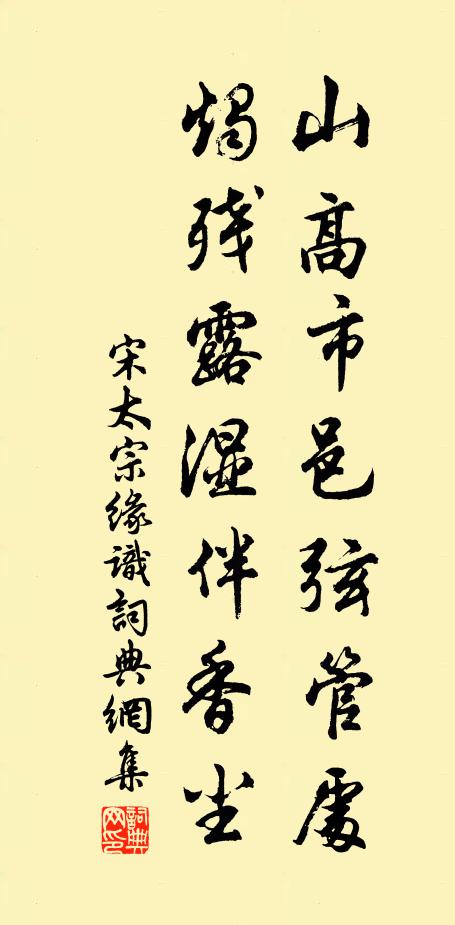 山高市邑弦管處
燭残露濕伴香尘
宋太宗緣識詞典網集
詞典網印